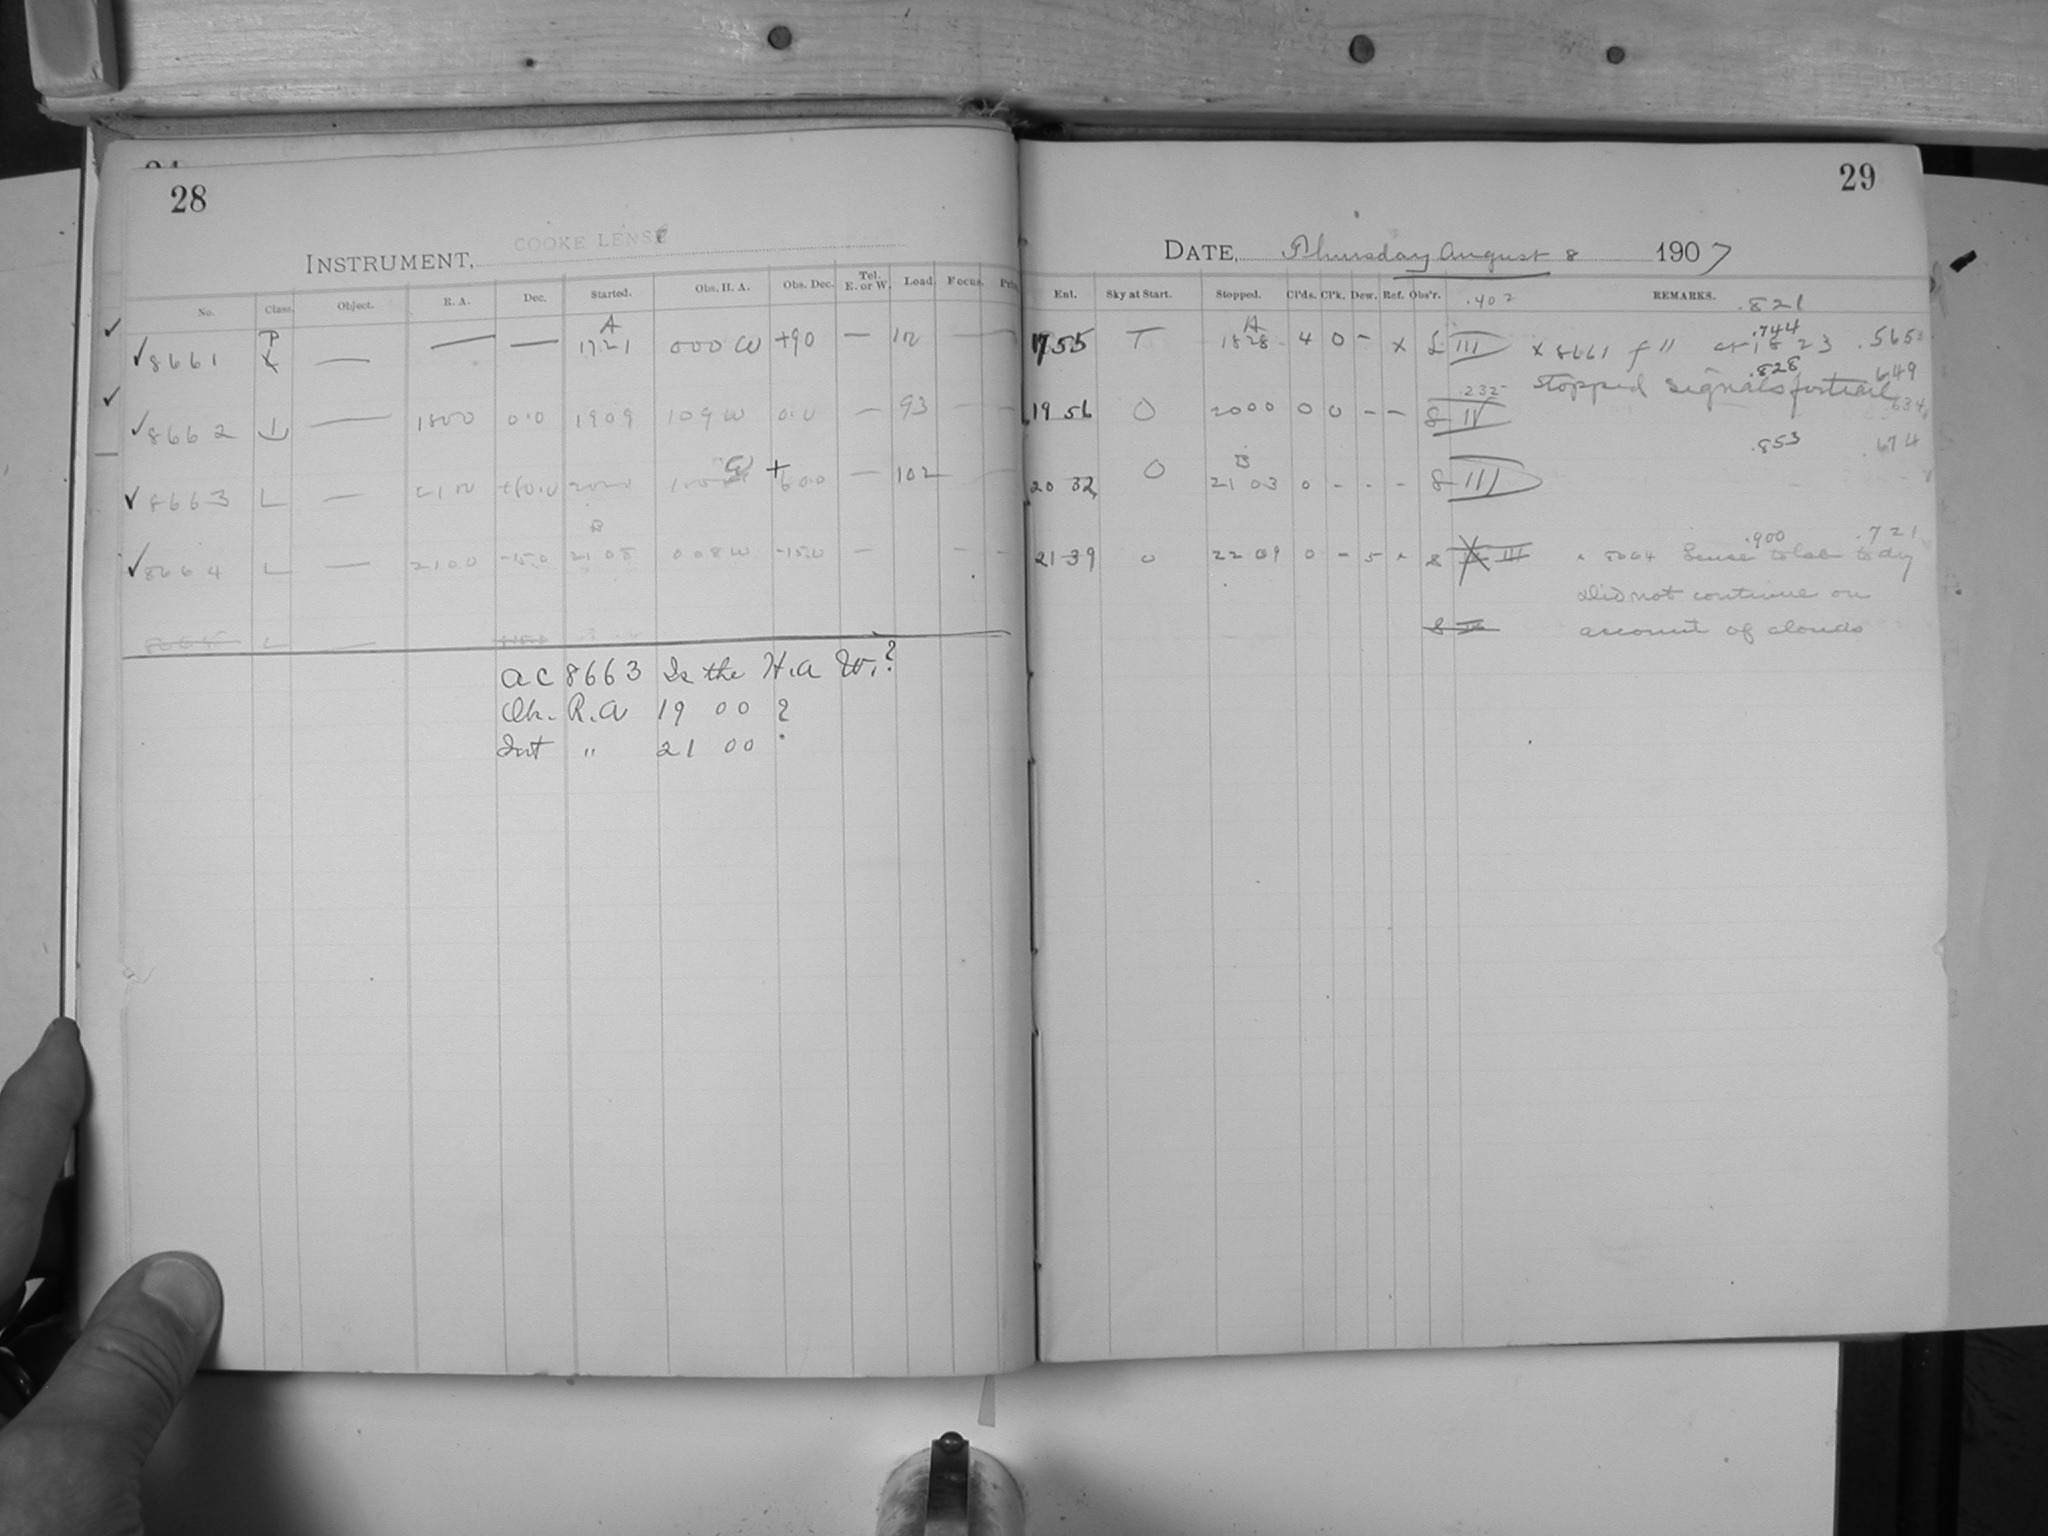 28
INSTRUMENT, COOKE LENSE
No. Class. Object. R. A. Dec. Started. Obs. H. A. Obs. Dec. Tel. E. or W. Load. Focus.
✓ 8661 — — — A 17 21 0 00 W +90 —
✓ 8662 L — 18 00 0.0 19 09 1 09 W 0.0 — 93 —
✓ 8663 L — W + 60.0 — 102
✓ 8664 L — 21 00 -15.0 B 21 08 0 08 W -15.0 —
8665 L —
A C 8663 Is the H.A W.?
Ch. R.A 19 00 ?
Int " 21 00
29
DATE, Thursday August 8 1907
Ent. Sky at Start. Stopped. Cl'ds. Cl'k. Dew. Ref. Obs'r. .402 REMARKS. .821
17 55 T A 18 28 4 0 - x III x 8661 18 23 .744 .565
.232 stopped signals for trail .828 .649
19 56 O 20 00 0 0 - - 8 IV .634
.853 .674
20 32 O B 21 03 0 - - - 8 III
.900 .721
21 39 0 22 09 0 - 5 8 III 8664 to dry
Did not continue on
8 account of clouds